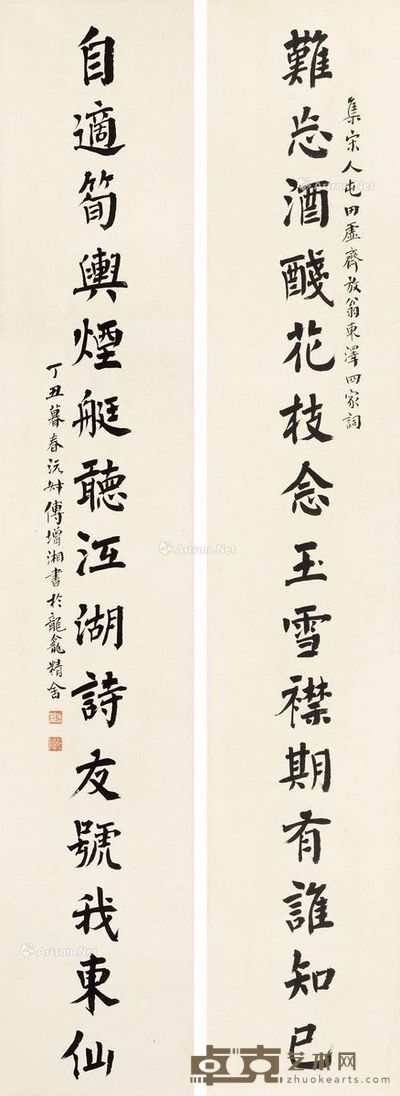 難忘酒醆花枝念玉雪襟期有誰知己
集宋人屯田虛齊放翁東澤四家詞
自適筍輿煙艇聽江湖詩友號我東仙
丁丑暮春沅叔傅增湘書於龍龕精舍
Artron.Net
卓克艺术网
www.zhuokearts.com